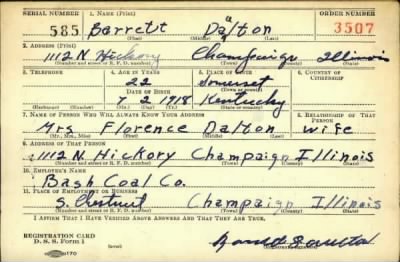 SERIAL NUMBER 1. NAME (Print) ORDER NUMBER
585 Barrett Dalton 3507
(First) (Middle) (Last)
2. ADDRESS (Print)
1112 N. Hickory Champaign Illinois
(Number and street or R. F. D. number) (Town) (County) (State)
3. TELEPHONE 4. AGE IN YEARS 5. PLACE OF BIRTH 6. COUNTRY OF CITIZENSHIP
22 Somerset
(Town or county)
DATE OF BIRTH
7 2 1918 Kentucky
(Exchange) (Number) (Mo.) (Day) (Yr.) (State or country)
7. NAME OF PERSON WHO WILL ALWAYS KNOW YOUR ADDRESS 8. RELATIONSHIP OF THAT PERSON
Mrs Florence Dalton wife
(Mr., Mrs., Miss) (First) (Middle) (Last)
9. ADDRESS OF THAT PERSON
1112 N. Hickory Champaign Illinois
(Number and street or R. F. D. number) (Town) (County) (State)
10. EMPLOYER'S NAME
Bash Coal Co.
11. PLACE OF EMPLOYMENT OR BUSINESS
S. Chestnut Champaign Illinois
(Number and street or R. F. D. number) (Town) (County) (State)
I AFFIRM THAT I HAVE VERIFIED ABOVE ANSWERS AND THAT THEY ARE TRUE.
REGISTRATION CARD
D. S. S. Form 1